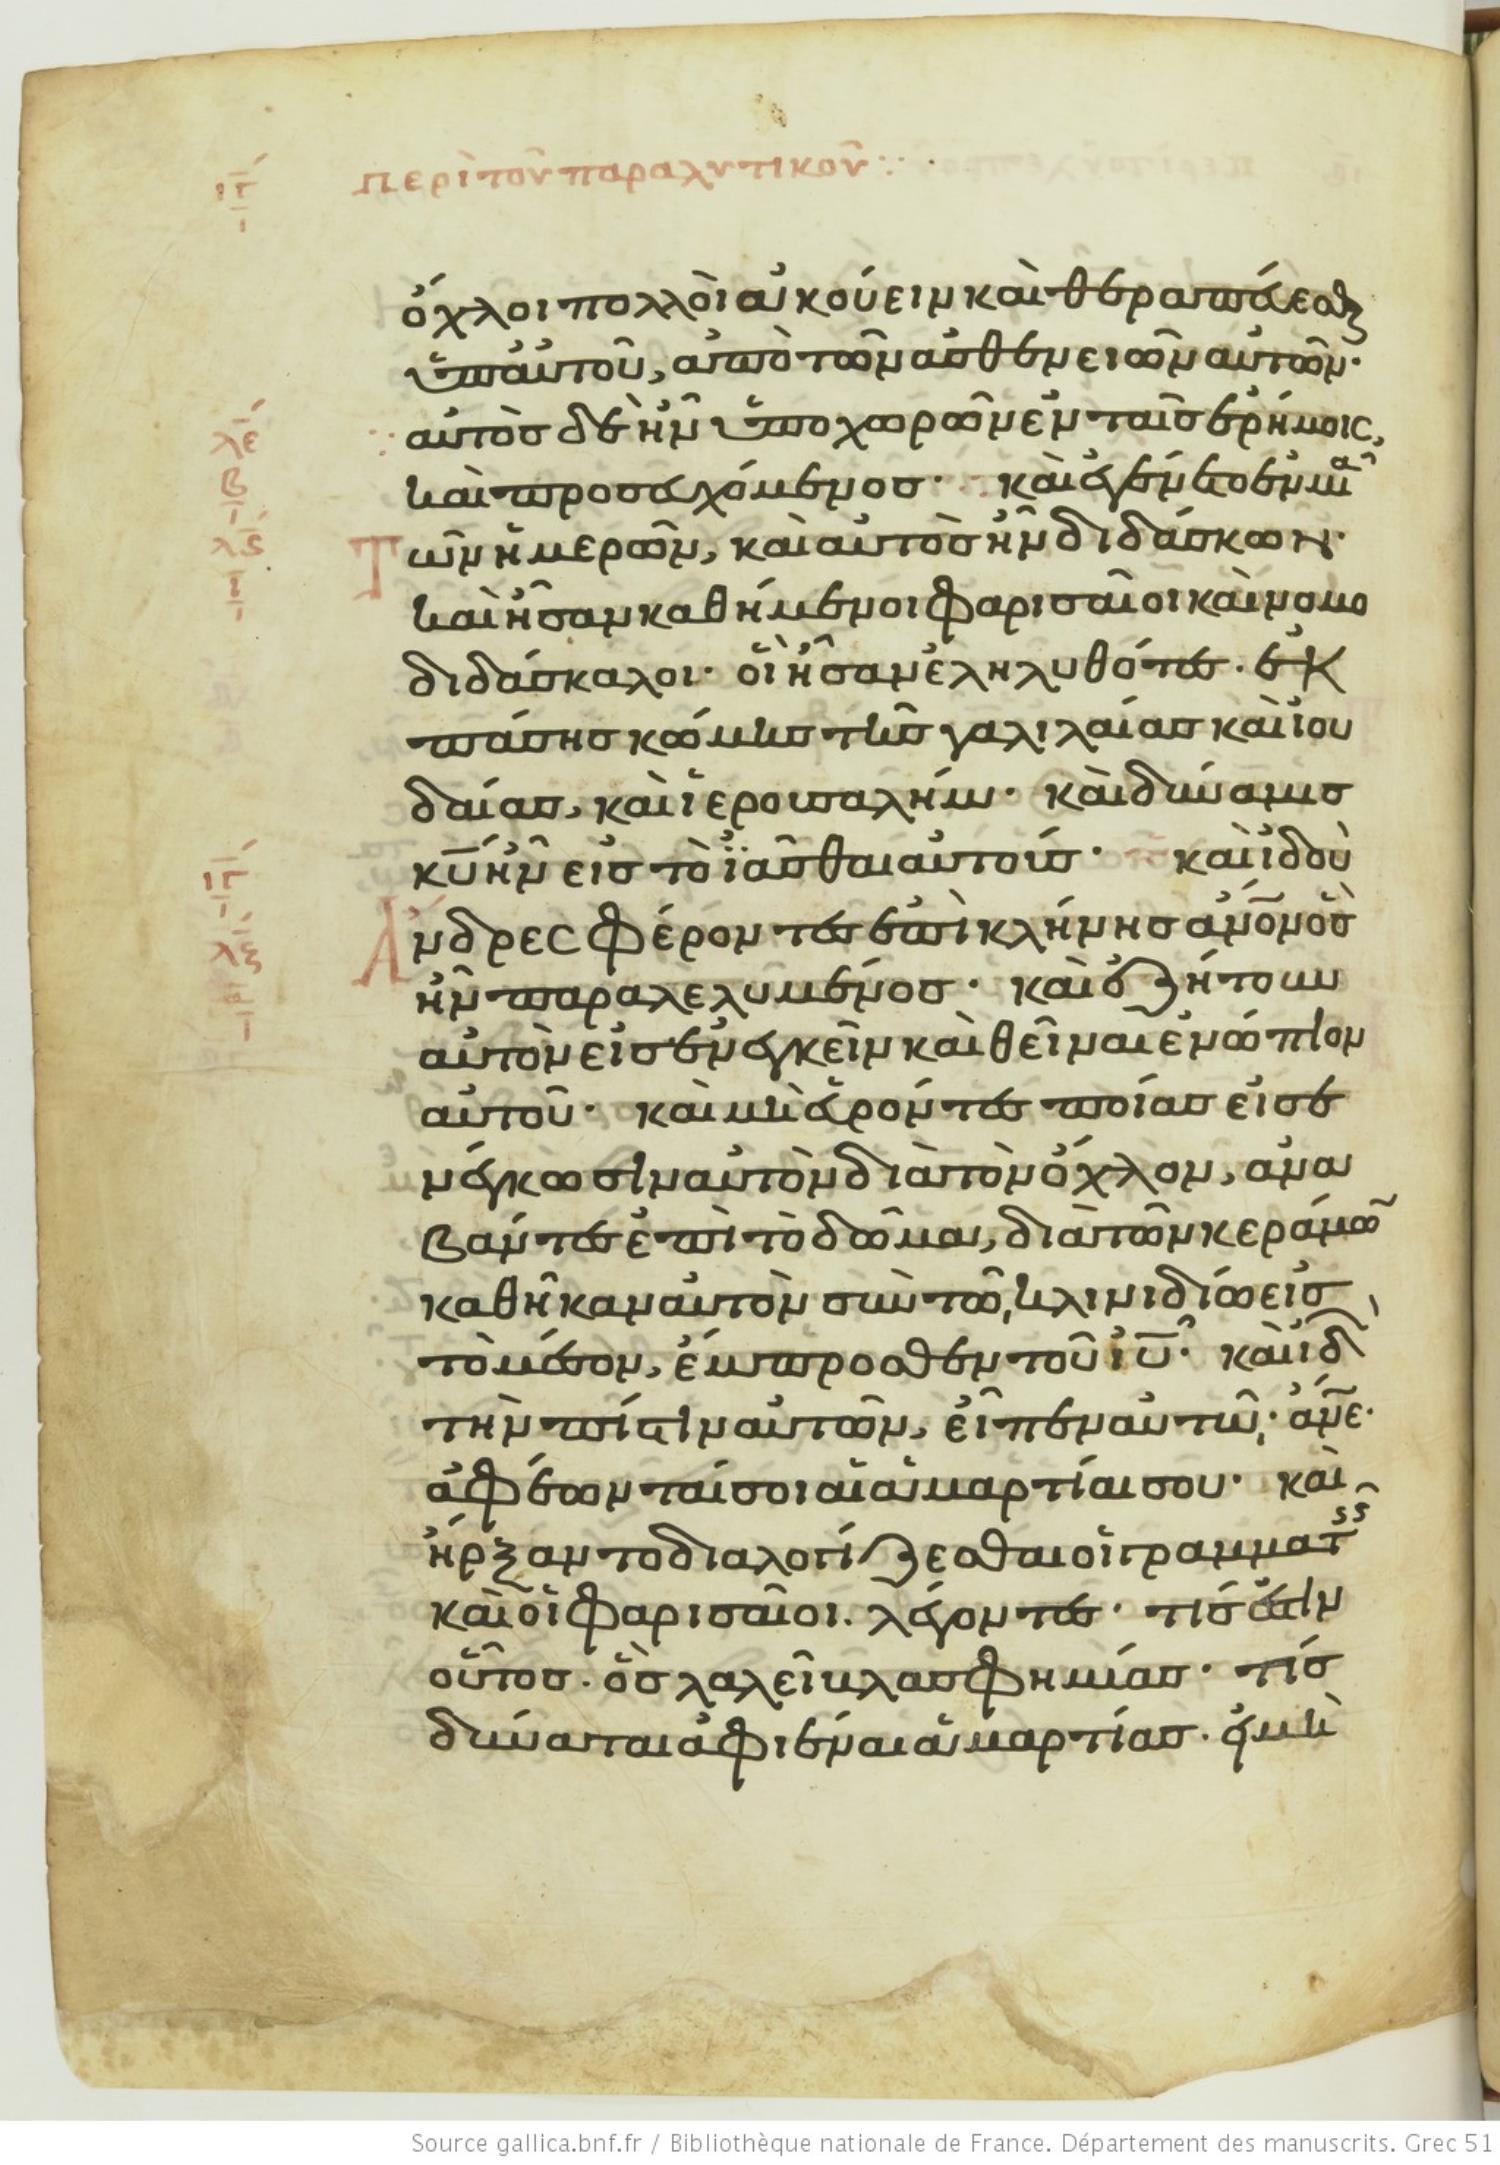 ιγ περὶ τοῦ παραλυτικοῦ
ὄχλοι πολλοὶ ἀκούειν καὶ θεραπεύεσθαι
ὑπ' αὐτοῦ, ἀπὸ τῶν ἀσθενειῶν αὐτῶν·
λε αὐτὸς δὲ ἦν ὑποχωρῶν ἐν ταῖς ἐρήμοις,
β καὶ προσευχόμενος· καὶ ἐγένετο ἐν μιᾷ
λς Τῶν ἡμερῶν, καὶ αὐτὸς ἦν διδάσκων·
ι καὶ ἦσαν καθήμενοι φαρισαῖοι καὶ νομο
διδάσκαλοι· οἳ ἦσαν ἐληλυθότες· ἐκ
πάσης κώμης τῆς γαλιλαίας καὶ ἰου
δαίας, καὶ ἱερουσαλήμ· καὶ δύναμις
κυ ἦν εἰς τὸ ἰᾶσθαι αὐτούς· καὶ ἰδοὺ
ιγ Ἄνδρες φέροντες ἐπὶ κλήνης ἀνον ὃς
λζ ἦν παραλελυμένος· καὶ ἐζήτουν
αὐτὸν εἰσενεγκεῖν καὶ θεῖναι ἐνώπιον
αὐτοῦ· καὶ μὴ εὑρόντες ποίας εἰσε
νέγκωσιν αὐτὸν διὰ τὸν ὄχλον, ἀνα
βάντες ἐπὶ τὸ δῶμα, διὰ τῶν κεράμω
καθῆκαν αὐτὸν σὺν τῷ κλινιδίῳ εἰς
τὸ μέσον, ἔμπροσθεν τοῦ ιυ· καὶ ἰδ
τὴν πίστιν αὐτῶν, εἶπεν αὐτῷ· ἄνε·
ἀφέωνταί σοι αἱ ἁμαρτίαι σου· καὶ
ἤρξαντο διαλογίζεσθαι οἱ γραμματ
καὶ οἱ φαρισαῖοι· λέγοντες· τίς ἐστιν
οὗτος· ὃς λαλεῖ βλασφημίας· τίς
δύναται ἀφιέναι ἁμαρτίας· εἰ μὴ
Source gallica.bnf.fr / Bibliothèque nationale de France. Département des manuscrits. Grec 51